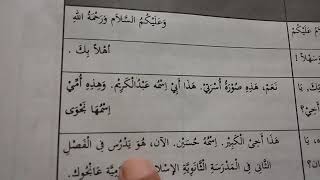 وَعَلَيْكُمُ السَّلَام وَرَحْمَةُ اللهِ
م عَلَيْكُمْ
أَهْلاً بِكَ .
وَسَهْلاً !
نَعَمْ، هَذِهِ صُوْرَةُ أُسْرَتِيْ. هَذَا أَبِيْ اِسْمُهُ عَبْدُالْكَرِيْمِ. وَهَذِهِ أُمِّيْ
بِكَ، يَا
اِسْمُهَا نَجْوَى
هَذَا أَخِيْ الْكَبِيْرُ. اِسْمُهُ حُسَيْنٌ. الآنَ، هُوَ يَدْرُسُ فِي الْفَصْلِ
يَا
الثَّانِى فِي الْمَدْرَسَةِ الثَّانَوِيَّةِ الإِسْلَا